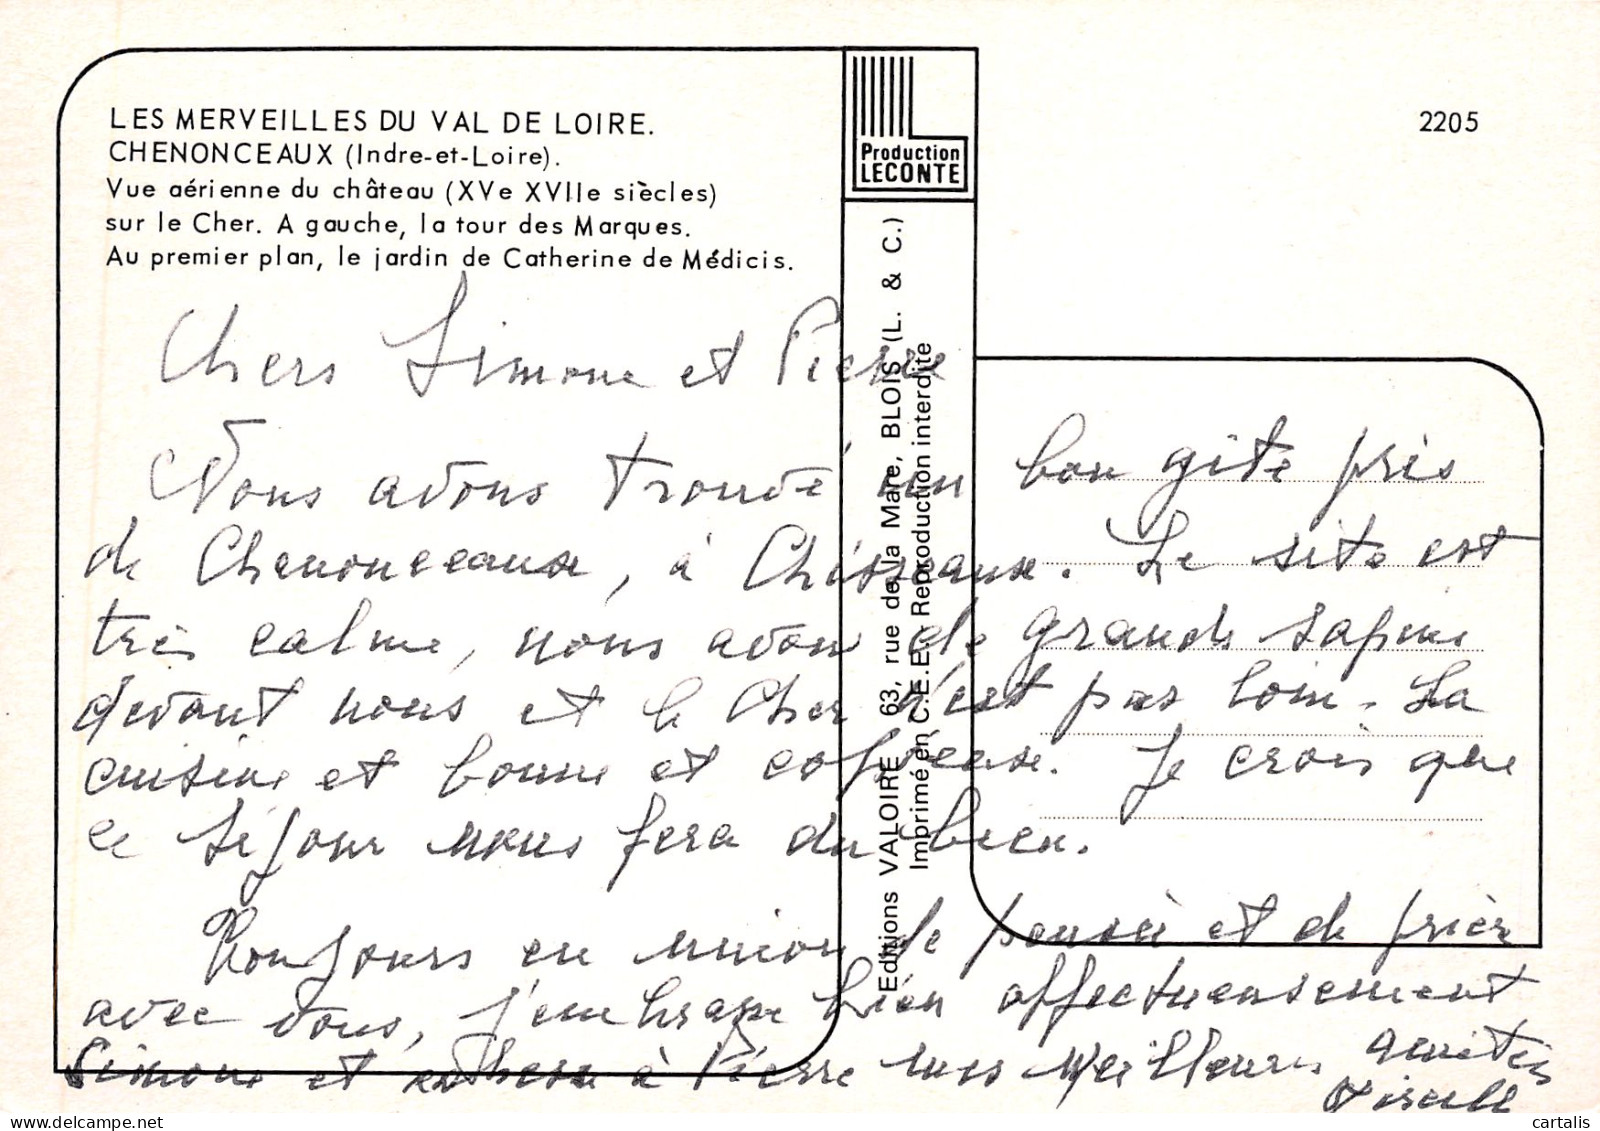 LES MERVEILLES DU VAL DE LOIRE.
CHENONCEAUX (Indre-et-Loire).
Vue aérienne du château (XVe XVIIe siècles)
sur le Cher. A gauche, la tour des Marques.
Au premier plan, le jardin de Catherine de Médicis.
Production
LECONTE
2205
Editions VALOIRE 63, rue de la Mare, BLOIS (L. & C.)
Imprimé en C.E.E. Reproduction interdite
Chers Simone et Pierre
Nous avons trouvé un bon gîte près
de Chenonceaux, à Chisseaux. Le site est
très calme, nous avons de grands sapins
devant nous et le Cher n'est pas loin. La
cuisine et bonne et copieuse. Je crois que
ce séjour nous fera du bien.
Toujours en union de pensée et de prière
avec vous, j'embrasse bien affectueusement
Simone et à Pierre mes meilleures amitiés
cartalis